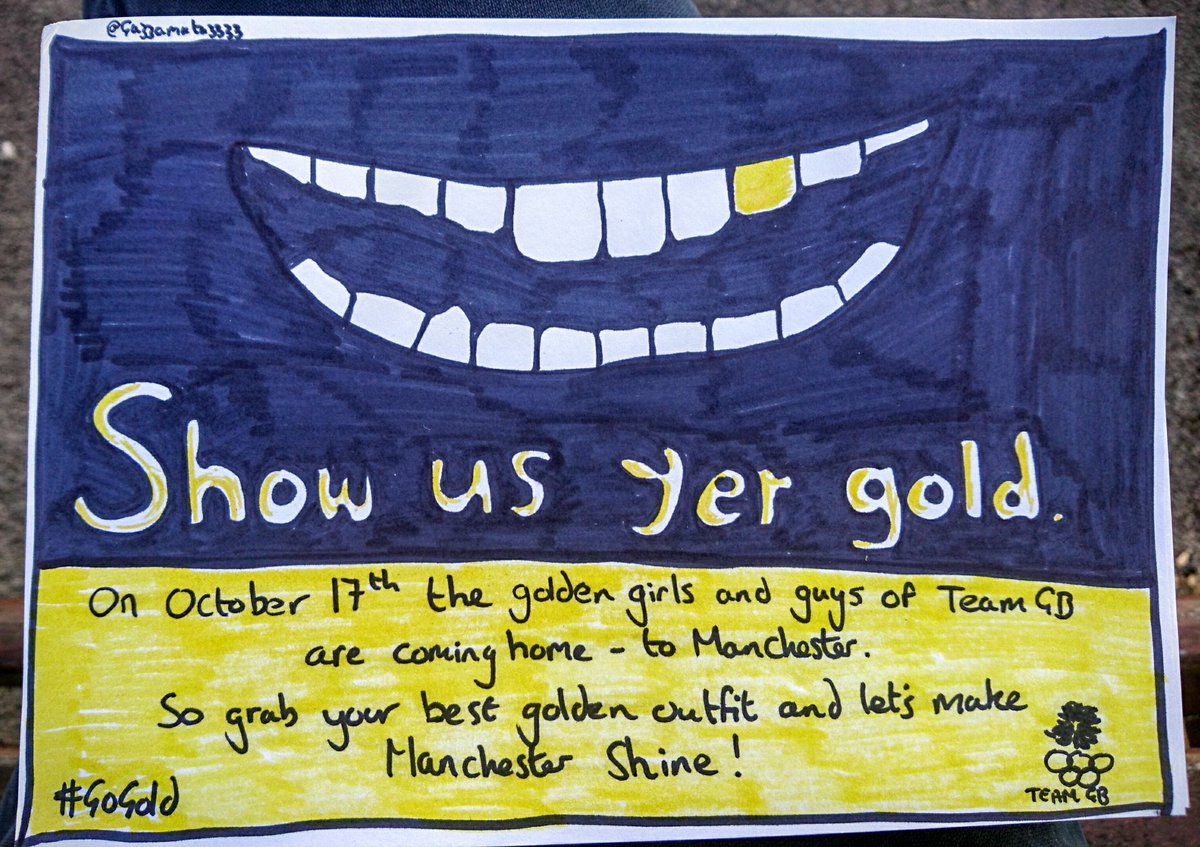 Show us yer gold.
On October 17th the golden girls and guys of Team GB
are coming home - to Manchester.
So grab your best golden outfit and let's make
Manchester Shine!
#GoGold
TEAM GB